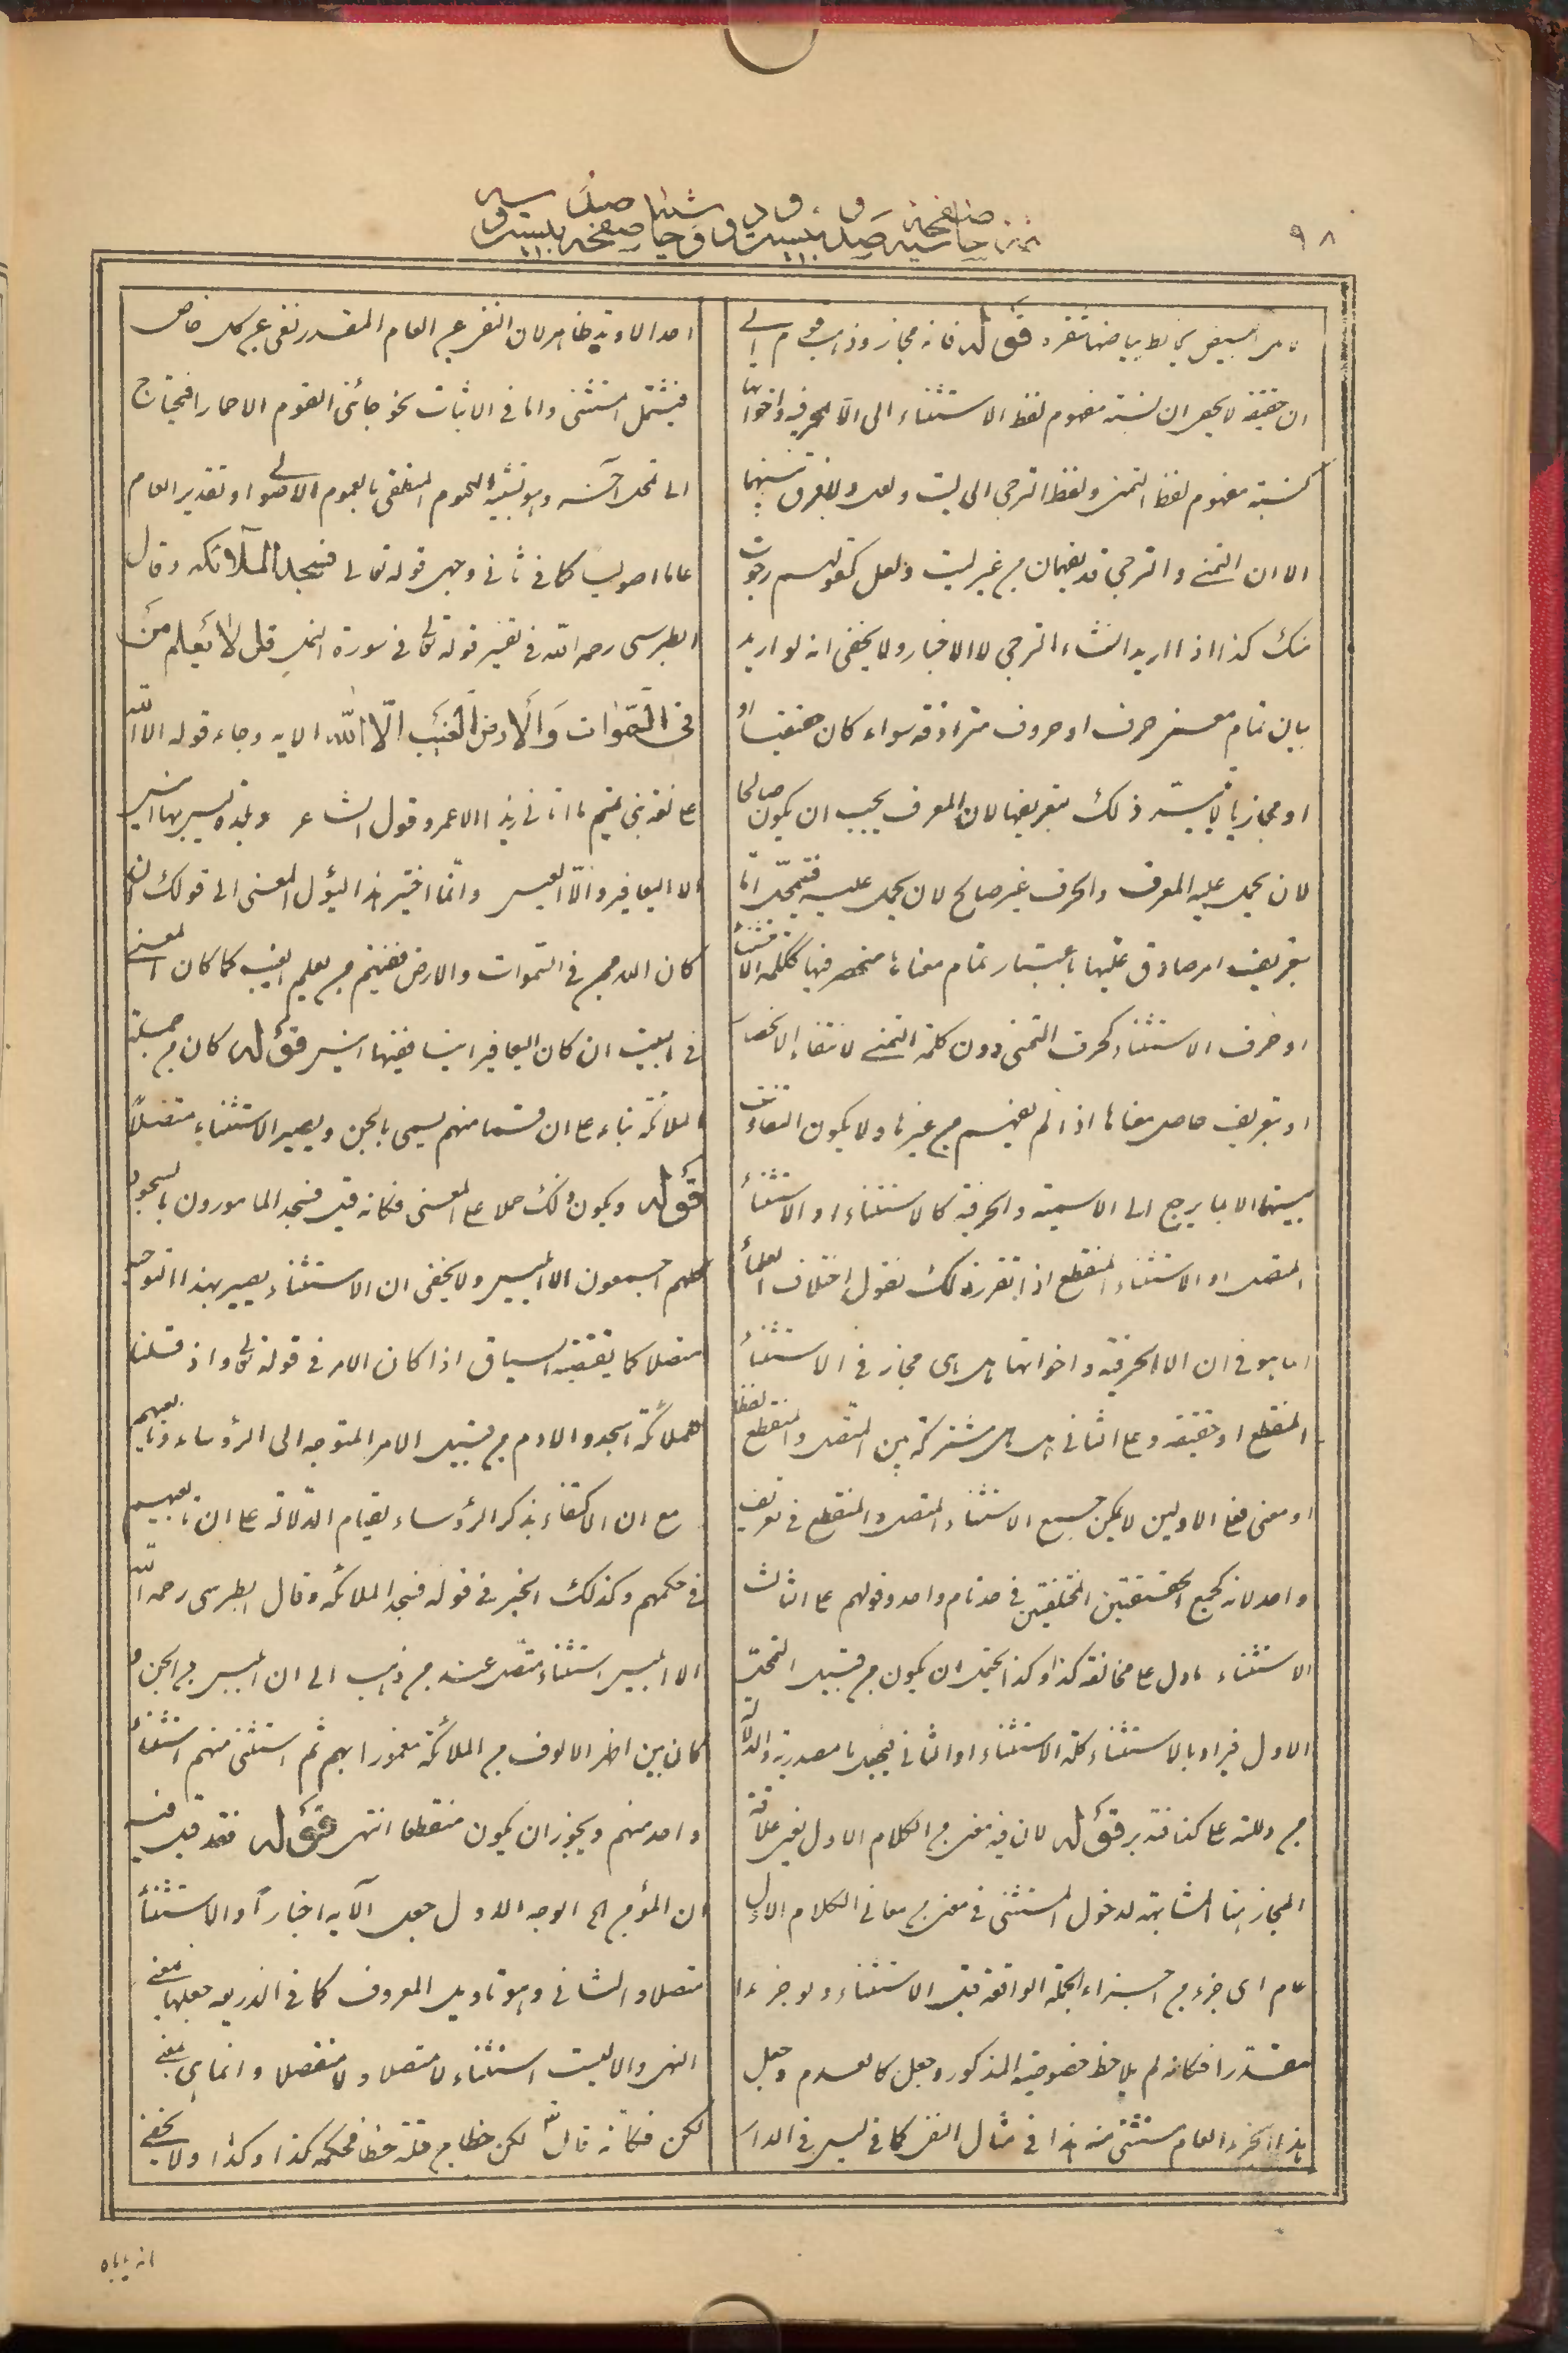 ٩٨
قوله فانه مجاز وذهب قوم الى
ان حقيقة لا يخفى ان نسبة مفهوم لفظ الاستثناء الى الا الحرفية واخواتها
كنسبة مفهوم لفظ التمنى ولفظ الترجى الى ليت ولعل ولا فرق بينهما
الا ان التمنى والترجى قد يفهمان من غير ليت ولعل كقولهم رجوت
منك كذا اذا اريد انشاء الترجى لا الاخبار ولا يخفى انه لو اريد
بيان تمام معنى حرف او حروف مترادفة سواء كان حقيقيا او
او مجازيا لا يتيسر ذلك بتعريفها لان المعرف يجب ان يكون صالحا
لان يحمل عليه المعرف والحرف غير صالح لان يحمل عليه فيتمحل اما
بتعريف امر صادق عليها باعتبار تمام معناها منحصر فيها ككلمة الاستثناء
او حرف الاستثناء كحرف التمنى دون كلمة التمنى لانتفاء الانحصار
او بتعريف حاصل معناها اذا لم يفهم من غيرها ولا يكون التفاوت
بينهما الا بما يرجع الى الاسمية والحرفية كالاستثناء او الاستثناء
المتصل او الاستثناء المنقطع اذا تقرر ذلك نقول اختلاف العلماء
انما هو فى ان الا الحرفية واخواتها هل هى مجاز فى الاستثناء
المنقطع او حقيقة وعلى الثانى هل هى مشتركة بين المتصل والمنقطع لفظا
او معنى فعلى الاولين لا يمكن جمع الاستثناء المتصل والمنقطع فى تعريف
واحد لانه كجمع الحقيقتين المختلفتين فى حد تام واحد وقولهم على الثالث
الاستثناء ما دل على مخالفة كذا وكذا يحتمل ان يكون من قبيل التمحل
الاول فيراد بالاستثناء كلمة الاستثناء او الثانى فيجعل ما مصدرية والدلالة
من دلالته على كذا فتدبر قوله لان فيه معنى من الكلام الاول بغير علاقة
المجاز هنا المشابهة لدخول المستثنى فى معنى من معانى الكلام الاول
عام اى جزء من اجزاء الجملة الواقعة قبل الاستثناء ولو جزءا
مقدرا فكانه لم يلاحظ خصوصية المذكور وجعل كالعدم وجعل
هذا الجزء العام مستثنى منه هذا فى مثال النفى كما فى ليس فى الدار
احد الا وتد ظاهر لان النفى عن العام المقدر نفى عن كل خاص
فيشمل المستثنى واما فى الاثبات نحو جائنى القوم الا حمارا فيحتاج
الى تمحل آخر وهو تشبيه العموم المنطقى بالعموم الاصولى او تقدير العام
عاما اصوليا كما فى ثانى وجهى قوله تعالى فسجد الملائكة وقال
الطبرسى رحمه الله فى تفسير قوله تعالى فى سورة النمل قل لا يعلم من
فى السموات والارض الغيب الا الله الاية وجاء قوله الا الله
على لغة بنى تميم ما اتانى زيد الا عمرو وقول الشاعر وبلدة ليس بها انيس
الا اليعافير والا العيس وانما اختير هذا ليؤل المعنى الى قولك ان
كان الله ممن فى السموات والارض ففيهم من يعلم الغيب كما كان المعنى
فى البيت ان كان اليعافير انيسا ففيها انيس قوله كان من جملة
الملائكة بناء على ان قسما منهم يسمى بالجن ويصير الاستثناء متصلا
قوله ويكون ذلك حملا على المعنى فكانه قيل فسجد المامورون بالسجود
كلهم اجمعون الا ابليس ولا يخفى ان الاستثناء يصير بهذا التوجيه
متصلا كما يقتضيه السياق اذا كان الامر فى قوله تعالى واذ قلنا
للملائكة اسجدوا لادم من قبيل الامر المتوجه الى الرؤساء وتابعيهم
مع ان الاكتفاء بذكر الرؤساء لقيام الدلالة على ان تابعيهم
فى حكمهم وكذلك الخبر فى قوله فسجد الملائكة وقال الطبرسى رحمه الله
الا ابليس استثناء متصل عند من ذهب الى ان ابليس من الجن و
كان بين اظهر الالوف من الملائكة مغمورا بهم ثم استثنى منهم استثناء
واحد منهم ويجوز ان يكون منقطعا انتهى قوله فقد قيل فيه
ان المؤمن الخ الوجه الاول جعل الآية اخبارا والاستثناء
متصلا والثانى وهو تاويل المعروف كما فى الذريعة جعلها بمعنى
النهى والا ليست استثناء لا متصلا ولا منفصلا وانما هى بمعنى
لكن فكانه قال لكن خطا من قتله خطا فحكمه كذا وكذا ولا يخفى